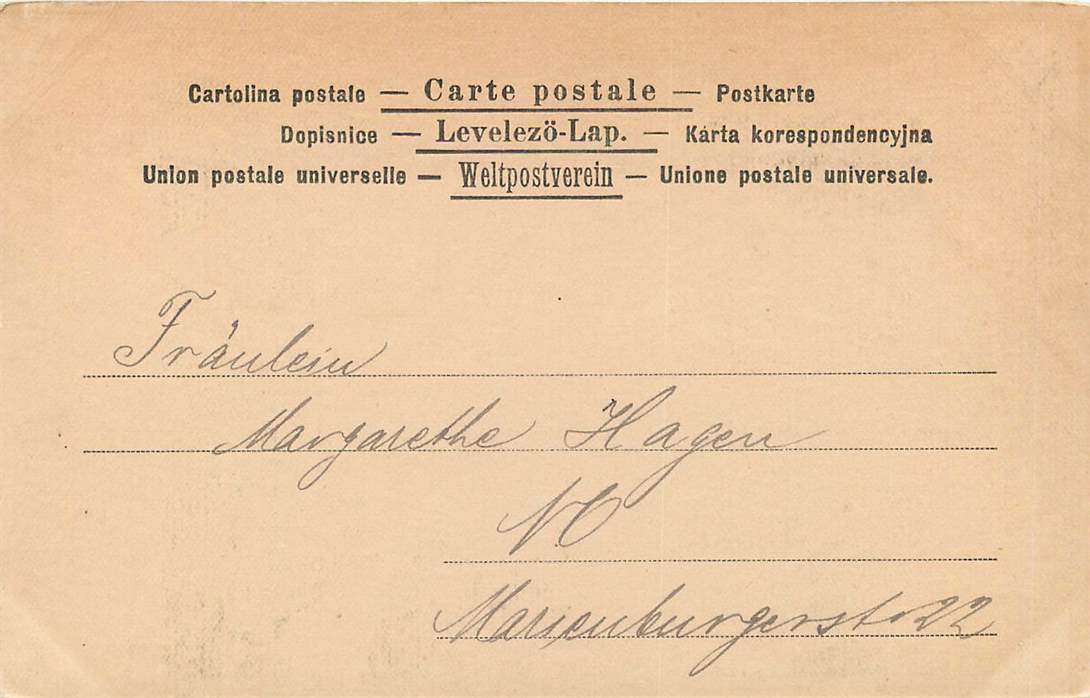 Cartolina postale — Carte postale — Postkarte
Dopisnice — Levelezö-Lap. — Kárta korespondencyjna
Union postale universelle — Weltpostverein — Unione postale universale.
Fräulein
Margarethe Hagen
NO
Marienburgerstr 22